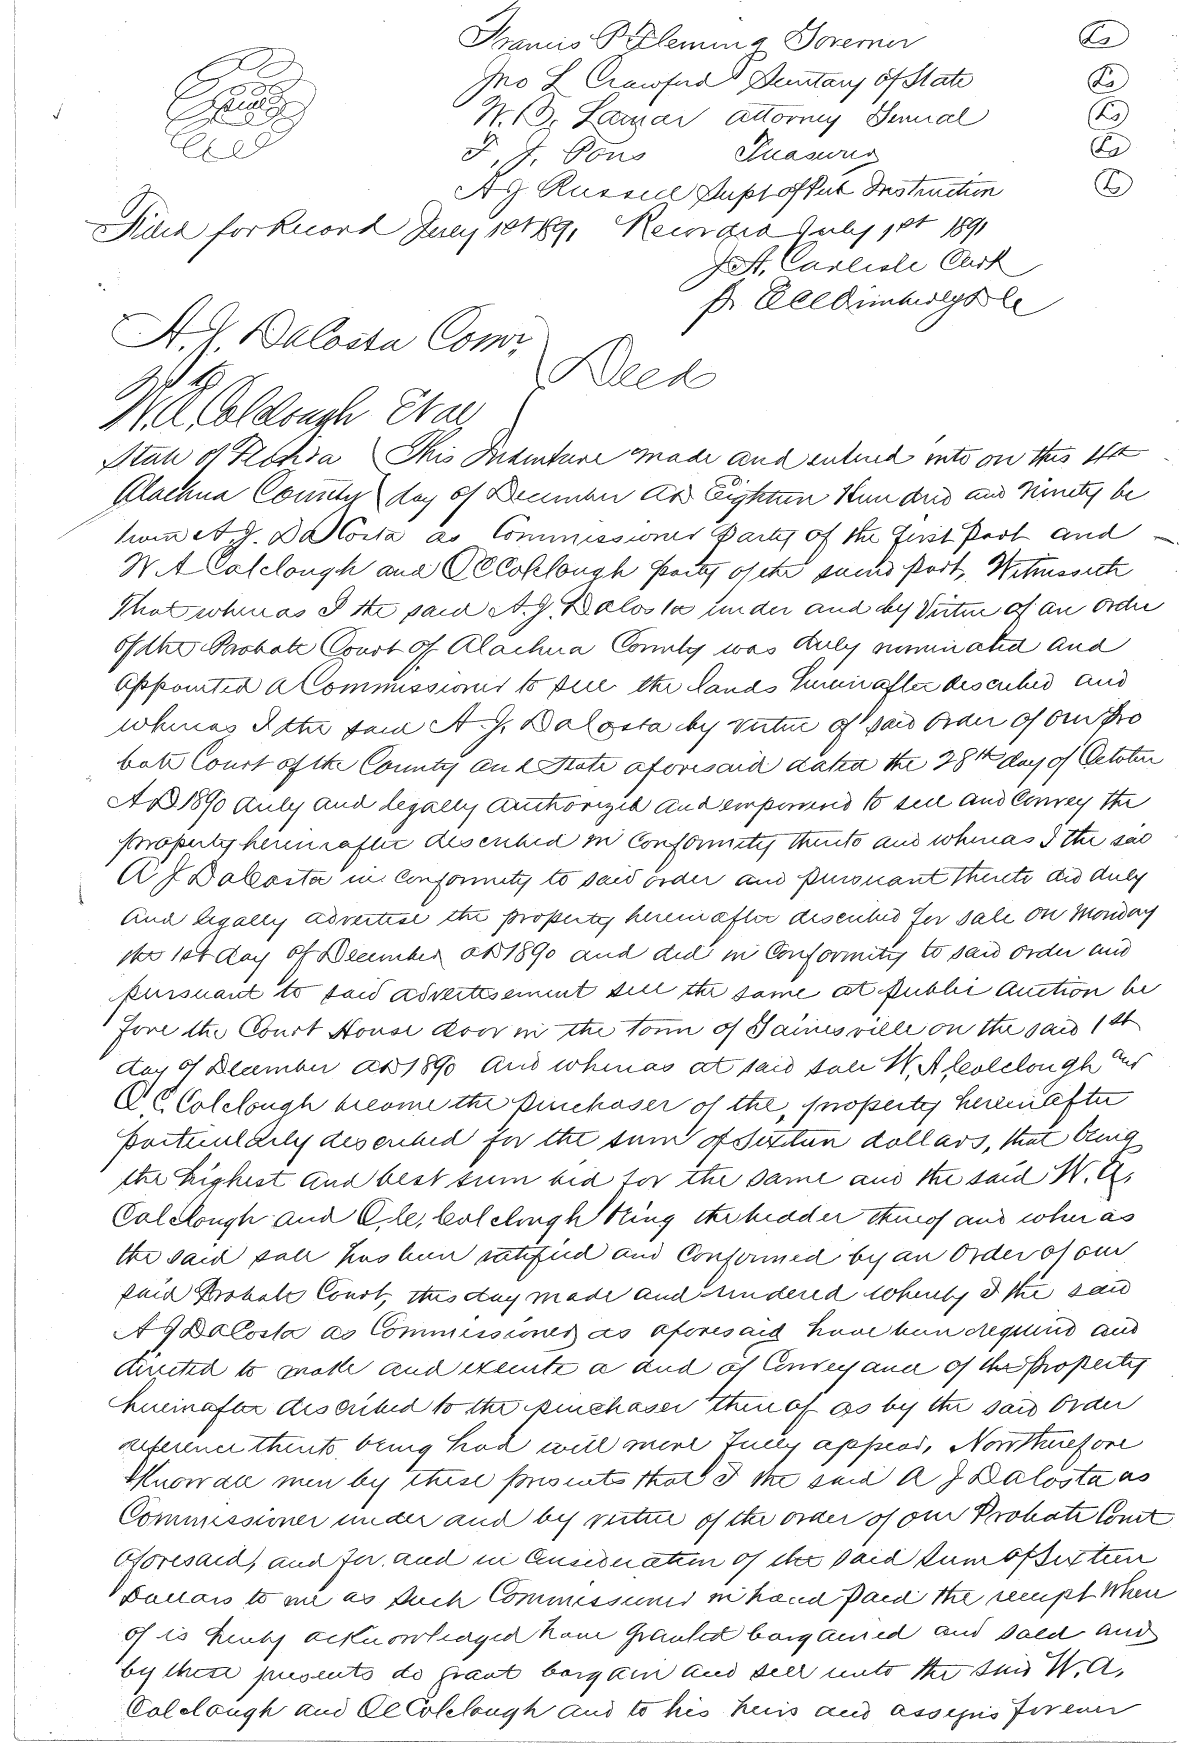 Francis P Fleming Governor Ls
Jno L Crawford Secretary of State Ls
W. B. Lamar attorney General Ls
F. J. Pons Treasurer Ls
A J Russell Supt of Pub Instruction Ls
Filed for Record July 1st 1891 Recorded July 1st 1891
J A. Carlisle Clerk
A. J. DaCosta Comr.
to Deed
W. A. Colclough Et al
State of Florida This Indenture made and entered into on this 4th
Alachua County day of December AD Eighteen Hundred and Ninety be
tween A. J. DaCosta as Commissioner Party of the first Part and
W. A Colclough and O C Colclough party of the second part, Witnesseth
That whereas I the said A. J. DaCosta under and by Virtue of an order
of the Probate Court of Alachua County was duly nominated and
appointed a Commissioner to sell the lands hereinafter described and
whereas I the said A. J. DaCosta by virtue of said order of our Pro
bate Court of the County and State aforesaid dated the 28th day of October
AD 1890 duly and legally authorized and empowered to sell and Convey the
property hereinafter described in Conformity thereto and whereas I the said
A J DaCosta in conformity to said order and pursuant thereto did duly
and legally advertise the property hereinafter described for sale on Monday
the 1st day of December AD 1890 and did in Conformity to said order and
pursuant to said advertisement sell the same at public auction be
fore the Court House door in the town of Gainesville on the said 1st
day of December AD 1890 and whereas at said sale W. A. Colclough and
O. C. Colclough became the purchaser of the property hereinafter
particularly described for the sum of Sixteen dollars, that being
the highest and best sum bid for the same and the said W. A.
Colclough and O. C. Colclough being the bidder thereof and whereas
the said sale has been ratified and Confirmed by an Order of our
said Probate Court, this day made and rendered whereby I the said
A J DaCosta as Commissioner as aforesaid have been required and
directed to make and execute a deed of Conveyance of the Property
hereinafter described to the purchaser thereof as by the said Order
reference thereto being had will more fully appear, Now therefore
Know all men by these presents that I the said A J DaCosta as
Commissioner under and by virtue of the order of our Probate Court
aforesaid, and for and in Consideration of the said sum of Sixteen
Dollars to me as such Commissioner in hand paid the receipt where
of is hereby acknowledged have granted bargained and sold and
by these presents do grant bargain and sell unto the said W. A.
Colclough and O C Colclough and to his heirs and assigns forever